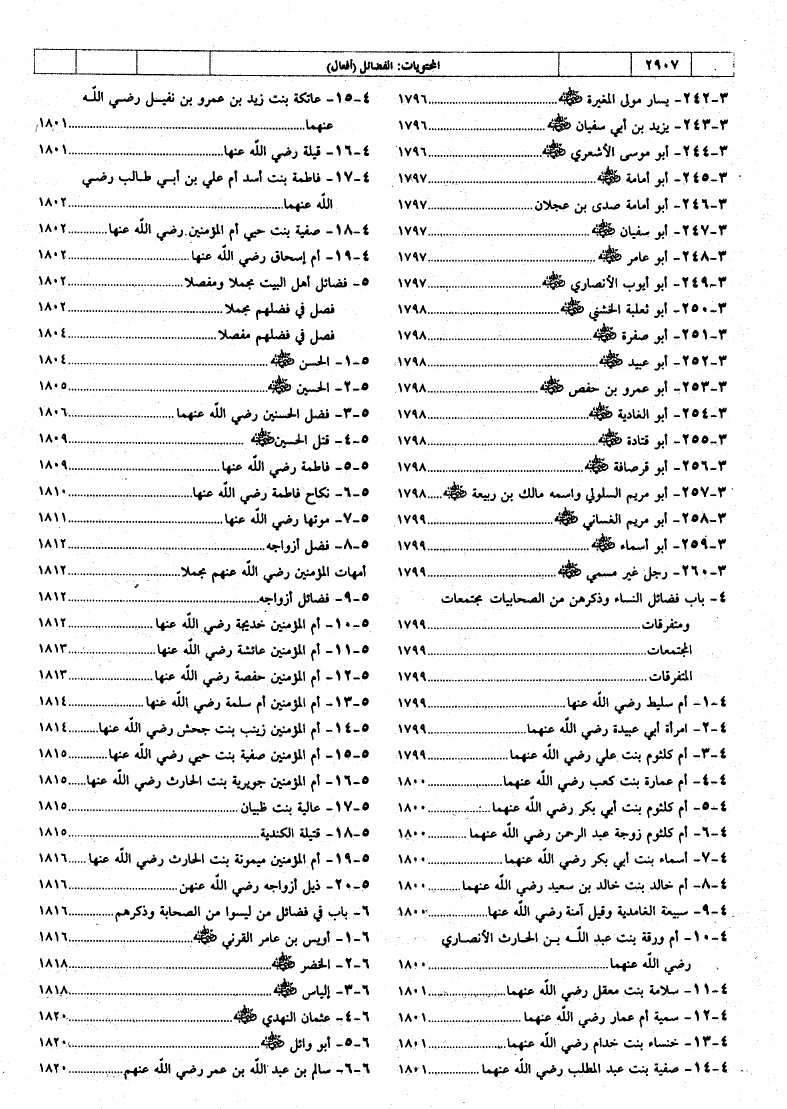 ٢٩٠٧
المحتويات: الفضائل (أفعال)
٣-٢٤٢- يسار مولى المغيرة ﷺ ١٧٩٦
٣-٢٤٣- يزيد بن أبي سفيان ﷺ ١٧٩٦
٣-٢٤٤- أبو موسى الأشعري ﷺ ١٧٩٦
٣-٢٤٥- أبو أمامة ﷺ ١٧٩٧
٣-٢٤٦- أبو أمامة صدى بن عجلان ١٧٩٧
٣-٢٤٧- أبو سفيان ﷺ ١٧٩٧
٣-٢٤٨- أبو عامر ﷺ ١٧٩٧
٣-٢٤٩- أبو أيوب الأنصاري ﷺ ١٧٩٧
٣-٢٥٠- أبو ثعلبة الخشني ﷺ ١٧٩٨
٣-٢٥١- أبو صفرة ﷺ ١٧٩٨
٣-٢٥٢- أبو عبيد ﷺ ١٧٩٨
٣-٢٥٣- أبو عمرو بن حفص ﷺ ١٧٩٨
٣-٢٥٤- أبو الغادية ﷺ ١٧٩٨
٣-٢٥٥- أبو قتادة ﷺ ١٧٩٨
٣-٢٥٦- أبو قرصافة ﷺ ١٧٩٨
٣-٢٥٧- أبو مريم السلولي واسمه مالك بن ربيعة ﷺ ١٧٩٨
٣-٢٥٨- أبو مريم الغساني ﷺ ١٧٩٩
٣-٢٥٩- أبو أسماء ﷺ ١٧٩٩
٣-٢٦٠- رجل غير مسمي ﷺ ١٧٩٩
٤- باب فضائل النساء وذكرهن من الصحابيات مجتمعات
ومتفرقات ١٧٩٩
المجتمعات ١٧٩٩
المتفرقات ١٧٩٩
٤-١- أم سليط رضي الله عنها ١٧٩٩
٤-٢- امرأة أبي عبيدة رضي الله عنهما ١٧٩٩
٤-٣- أم كلثوم بنت علي رضي الله عنهما ١٧٩٩
٤-٤- أم عمارة بنت كعب رضي الله عنها ١٨٠٠
٤-٥- أم كلثوم بنت أبي بكر رضي الله عنهما ١٨٠٠
٤-٦- أم كلثوم زوجة عبد الرحمن رضي الله عنهما ١٨٠٠
٤-٧- أسماء بنت أبي بكر رضي الله عنهما ١٨٠٠
٤-٨- أم خالد بنت خالد بن سعيد رضي الله عنهما ١٨٠٠
٤-٩- سبيعة الغامدية وقيل آمنة رضي الله عنها ١٨٠٠
٤-١٠- أم ورقة بنت عبد الله بن الحارث الأنصاري
رضي الله عنهما ١٨٠٠
٤-١١- سلامة بنت معقل رضي الله عنهما ١٨٠١
٤-١٢- سمية أم عمار رضي الله عنهما ١٨٠١
٤-١٣- خنساء بنت خدام رضي الله عنهما ١٨٠١
٤-١٤- صفية بنت عبد المطلب رضي الله عنهما ١٨٠١
٤-١٥- عاتكة بنت زيد بن عمرو بن نفيل رضي الله
عنهما ١٨٠١
٤-١٦- قيلة رضي الله عنها ١٨٠١
٤-١٧- فاطمة بنت أسد أم علي بن أبي طالب رضي
الله عنهما ١٨٠٢
٤-١٨- صفية بنت حيي أم المؤمنين رضي الله عنها ١٨٠٢
٤-١٩- أم إسحاق رضي الله عنها ١٨٠٢
٥- فضائل أهل البيت مجملا ومفصلا ١٨٠٢
فصل في فضلهم مجملا ١٨٠٢
فصل في فضلهم مفصلا ١٨٠٤
٥-١- الحسن ﷺ ١٨٠٤
٥-٢- الحسين ﷺ ١٨٠٥
٥-٣- فضل الحسنين رضي الله عنهما ١٨٠٦
٥-٤- قتل الحسين ﷺ ١٨٠٩
٥-٥- فاطمة رضي الله عنها ١٨٠٩
٥-٦- نكاح فاطمة رضي الله عنها ١٨١٠
٥-٧- موتها رضي الله عنها ١٨١١
٥-٨- فضل أزواجه ١٨١٢
أمهات المؤمنين رضي الله عنهم مجملا ١٨١٢
٥-٩- فضائل أزواجه ١٨١٢
٥-١٠- أم المؤمنين خديجة رضي الله عنها ١٨١٢
٥-١١- أم المؤمنين عائشة رضي الله عنها ١٨١٣
٥-١٢- أم المؤمنين حفصة رضي الله عنها ١٨١٣
٥-١٣- أم المؤمنين أم سلمة رضي الله عنها ١٨١٤
٥-١٤- أم المؤمنين زينب بنت جحش رضي الله عنها ١٨١٤
٥-١٥- أم المؤمنين صفية بنت حيي رضي الله عنها ١٨١٥
٥-١٦- أم المؤمنين جويرية بنت الحارث رضي الله عنها ١٨١٥
٥-١٧- عالية بنت ظبيان ١٨١٥
٥-١٨- قتيلة الكندية ١٨١٥
٥-١٩- أم المؤمنين ميمونة بنت الحارث رضي الله عنها ١٨١٦
٥-٢٠- ذيل أزواجه رضي الله عنهن ١٨١٦
٦- باب في فضائل من ليسوا من الصحابة وذكرهم ١٨١٦
٦-١- أويس بن عامر القرني ﷺ ١٨١٦
٦-٢- الخضر ﷺ ١٨١٨
٦-٣- إلياس ﷺ ١٨١٨
٦-٤- عثمان النهدي ﷺ ١٨٢٠
٦-٥- أبو وائل ﷺ ١٨٢٠
٦-٦- سالم بن عبد الله بن عمر رضي الله عنهم ١٨٢٠